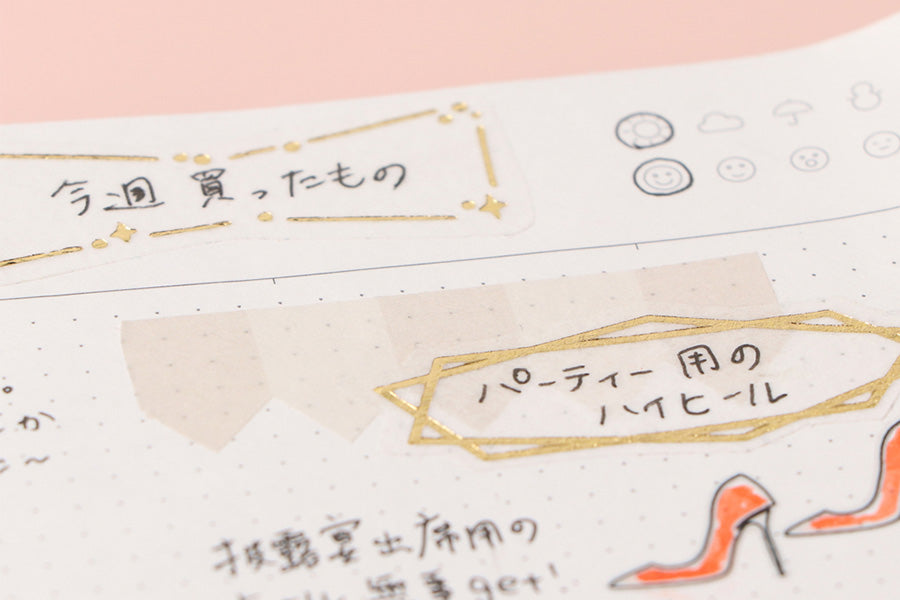 今週 買ったもの
パーティー用の
ハイヒール
披露宴出席用の
無事get!